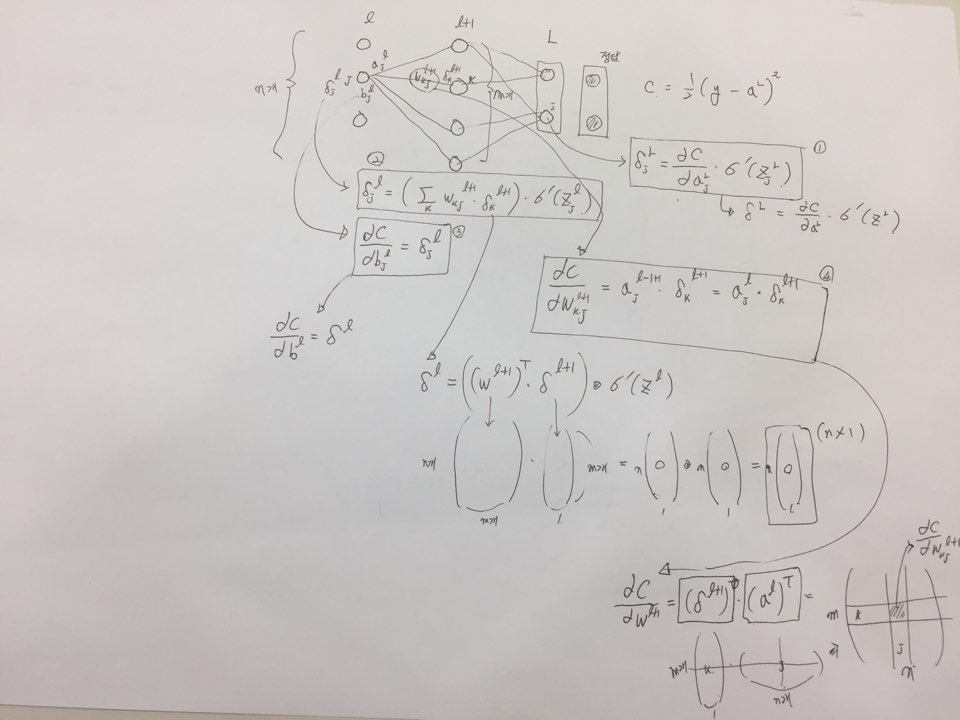 l l+1 L
n개 a_j^l δ_j^l j b_j^l w_kj^{l+1} δ_k^{l+1} k m개 j 정답
C = 1/2 (y - a^L)^2
① δ_j^L = ∂C/∂a_j^L · σ'(z_j^L)
δ^L = ∂C/∂a^L · σ'(z^L)
② δ_j^l = (Σ_k w_kj^{l+1} · δ_k^{l+1}) · σ'(z_j^l)
∂C/∂b_j^l = δ_j^l ③
∂C/∂b^l = δ^l
④ ∂C/∂w_kj^{l+1} = a_j^{l-1+1} · δ_k^{l+1} = a_j^l · δ_k^{l+1}
δ^l = ((w^{l+1})^T · δ^{l+1}) ⊙ σ'(z^l)
n개 ( ) · ( ) m개 = n ( 0 ) ⊙ n ( 0 ) = n ( 0 ) (n×1)
m개 1 1 1 1
∂C/∂w^{l+1} = (δ^{l+1}) · (a^l)^T =
m개 ( k ) · ( j )
1 n개
m ( k j ) n
∂C/∂w_kj^{l+1}